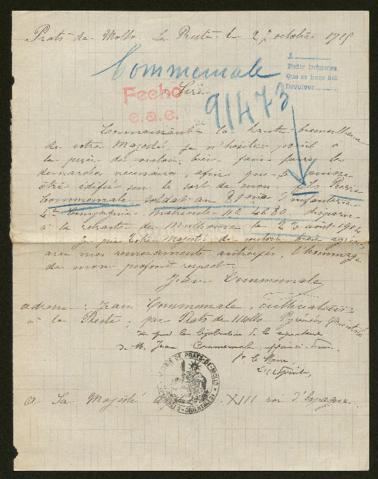 Prats-de-Mollo La Preste le 27 octobre 1915
Commemale
Sire
Fecha
e.a.e.
91473
Connaissant la haute bienveillance
de votre Majesté, je n'hésite point à
la prier de vouloir bien faire faire les
démarches nécessaires, afin que je
être édifié sur le sort de mon fils
Commemale soldat au d'infanterie
4me Compagnie matricule disparu
à la retraite de Mulhouse le août 1914
je prie Votre Majesté de vouloir bien agréer
avec mes remerciements anticipés, l'hommage
de mon profond respect
Jean Commemale
adresse: Jean Commemale, cultivateur
à la Preste, par Prats de Mollo Pyrénées Orientales
Vu pour la légalisation de la signature
de M. Jean Commemale
Le Maire
A Sa Majesté XIII roi d'Espagne